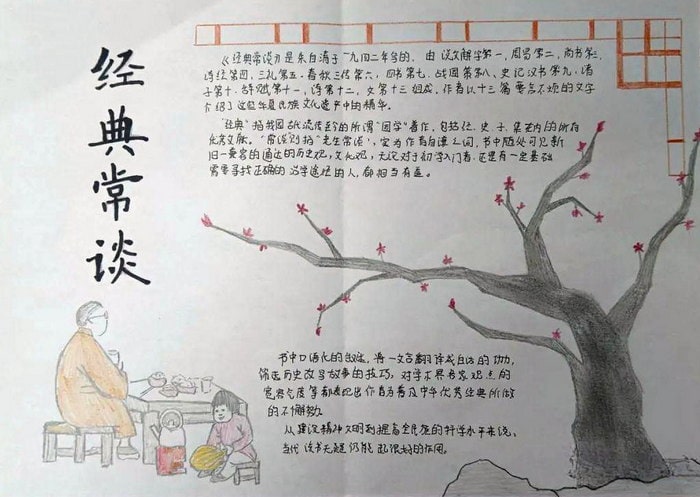 经典常谈
《经典常谈》是朱自清于一九四二年写的,由说文解字第一,周易第二,尚书第三,
诗经第四,三礼第五,春秋三传第六,四书第七,战国策第八,史记汉书第九,诸
子第十,辞赋第十一,诗第十二,文第十三组成,作者以十三篇要言不烦的文字
介绍了这些华夏民族文化遗产中的精华。
"经典"指我国古代流传至今的所谓"国学"著作,包括经、史、子、集在内的所有
文献。"常谈则指"老生常谈",实为作者自谦之词,书中随处可见新
旧一兼容的通达的历史观,文化观,无论对于初学入门者,还是有一定基础
需要寻找正确的治学途径的人,都相当有益。
书中口语化的叙述,将一文言翻译成白话的功
筛选历史改写故事的技巧,对学术界各家观点的
宽容气度等都表现出作者为普及中华优秀经典所做
的不懈努力。
从建设精神文明到提高全民族的科学水平来说,
当代读书无疑仍能起很好的作用。